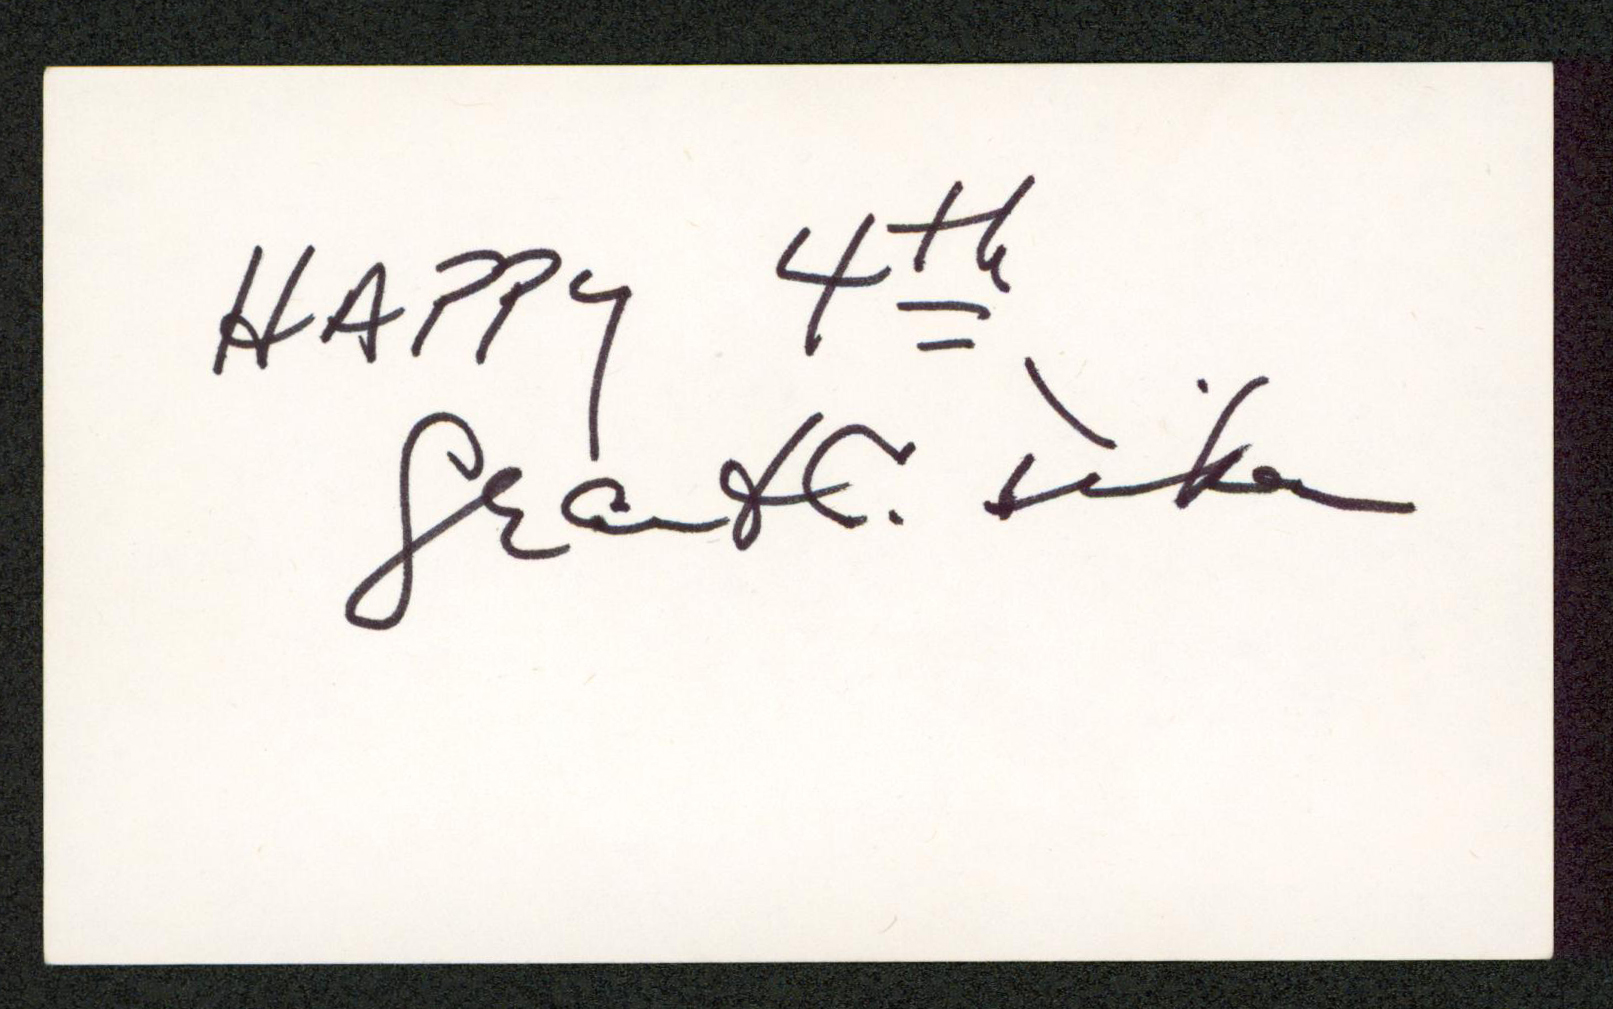 HAPPY 4th
Grant C.